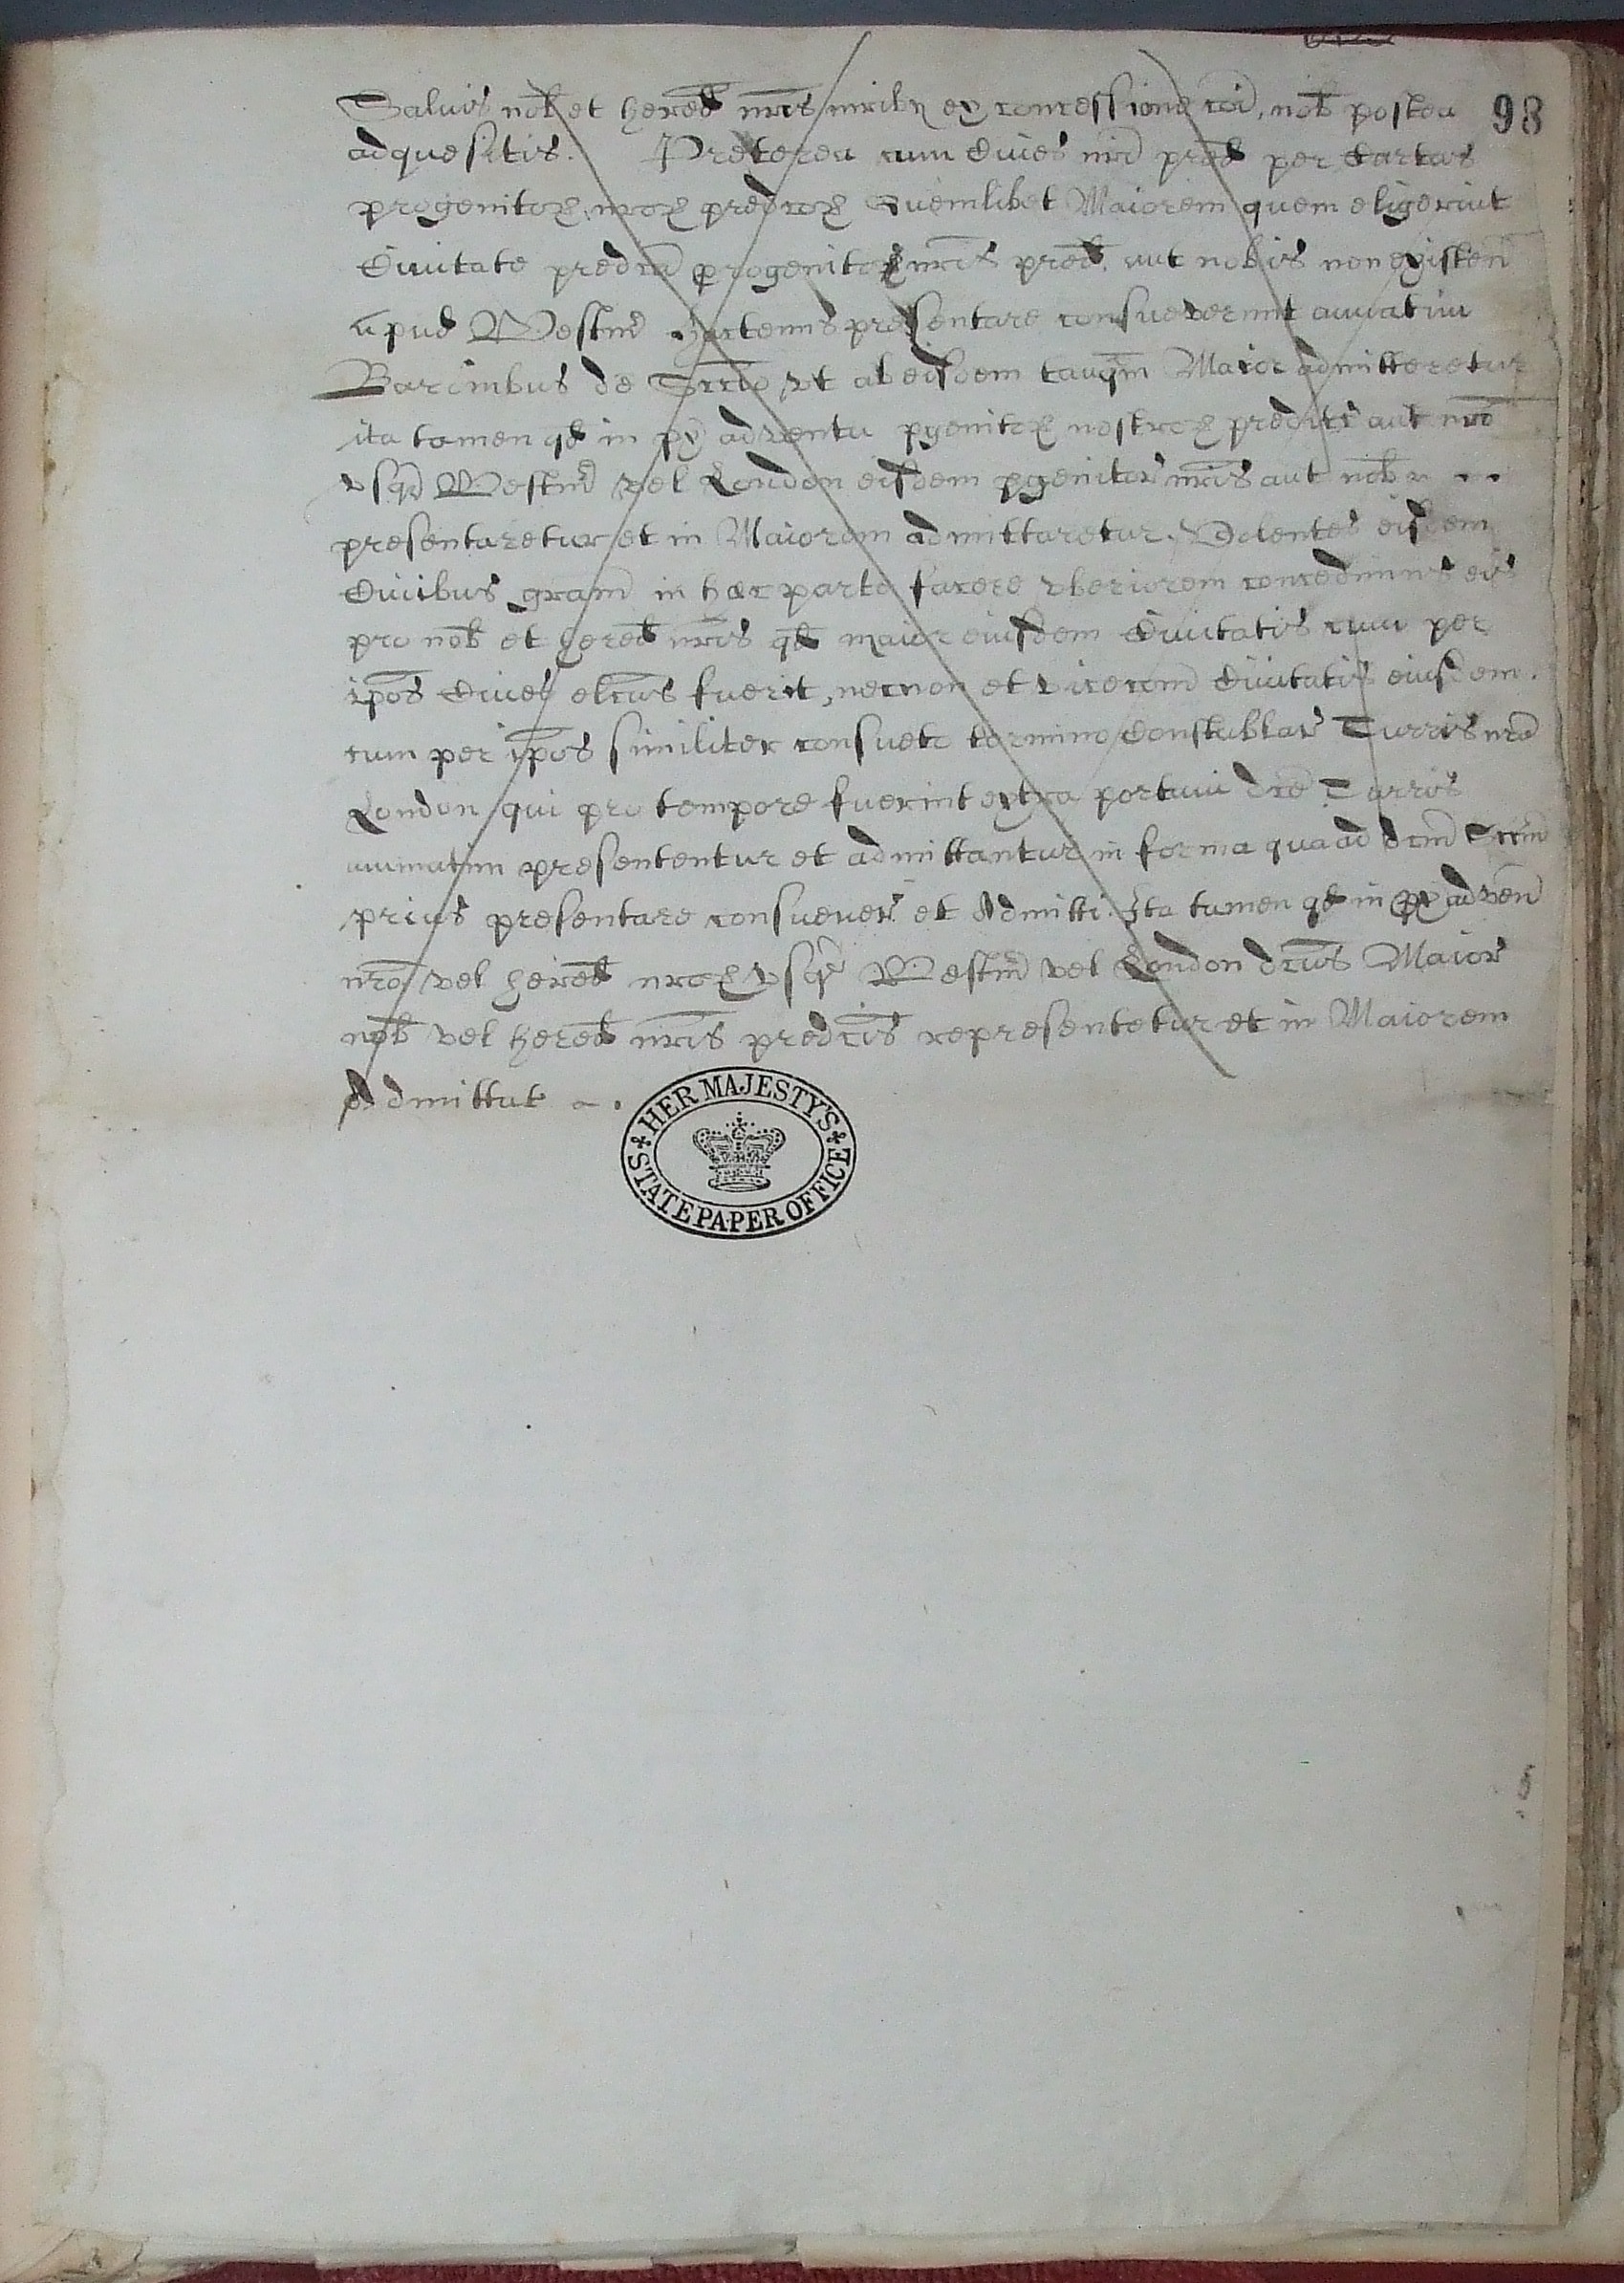 98
Saluis nob et hered nris iurib ex concessione eid, nob postea
adquesitis. Preterea cum Ciues nri pred per Cartas
progenitor nror predcor Quemlibet Maiorem quem eligerint
Ciuitate predca progenitor nris pred. aut nobis non existen
apud Westm hactenus presentare consueverint annatim
Baronibus de Sccio, vt ab eisdem tanqm Maior admitteretur
ita tamen qd in px adventu pgenitor nostror predcti aut nro
vsq Westm vel London eisdem pgenitor nris aut nob
presentaretur et in Maiorem admittaretur. Volentes eisdem
Ciuibus gram in hac parte facere vberiorem concedimus eis
pro nob et hered nris qd maior eiusdem Ciuitatis cum per
ipos Ciues elcus fuerit, necnon et vicecom Ciuitatis eiusdem.
cum per ipos similiter consueto termino Constablar Turris nre
London qui pro tempore fuerint extra portam dce Turris
annuatim presententur et admittantur in forma qua ad dcm Sccm
prius presentare consuever et Admitti. Ita tamen qd in px adven
nro vel hered nror vsq Westm vel London dcus Maior
nob vel hered nris predcis representetur et in Maiorem
admittat
HER MAJESTY'S
STATE PAPER OFFICE